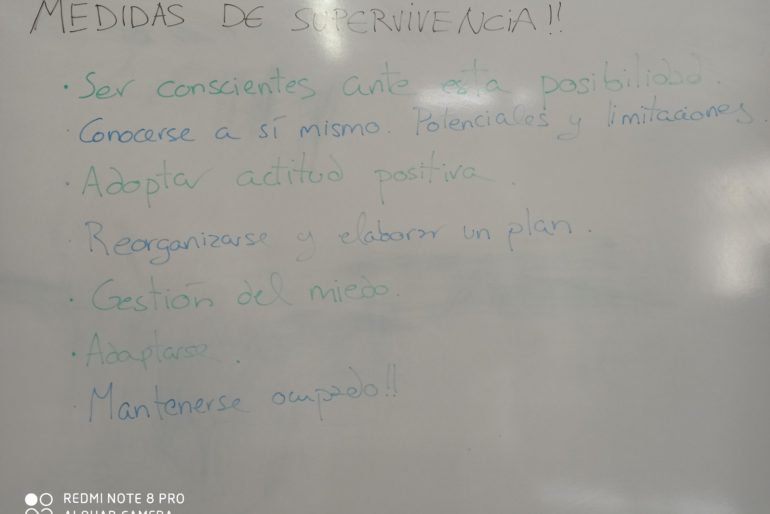 MEDIDAS DE SUPERVIVENCIA!!
· Ser conscientes ante esta posibilidad.
· Conocerse a sí mismo. Potenciales y limitaciones.
· Adoptar actitud positiva.
· Reorganizarse y elaborar un plan.
· Gestión del miedo.
· Adaptarse.
· Mantenerse ocupado!!
REDMI NOTE 8 PRO
AI QUAD CAMERA